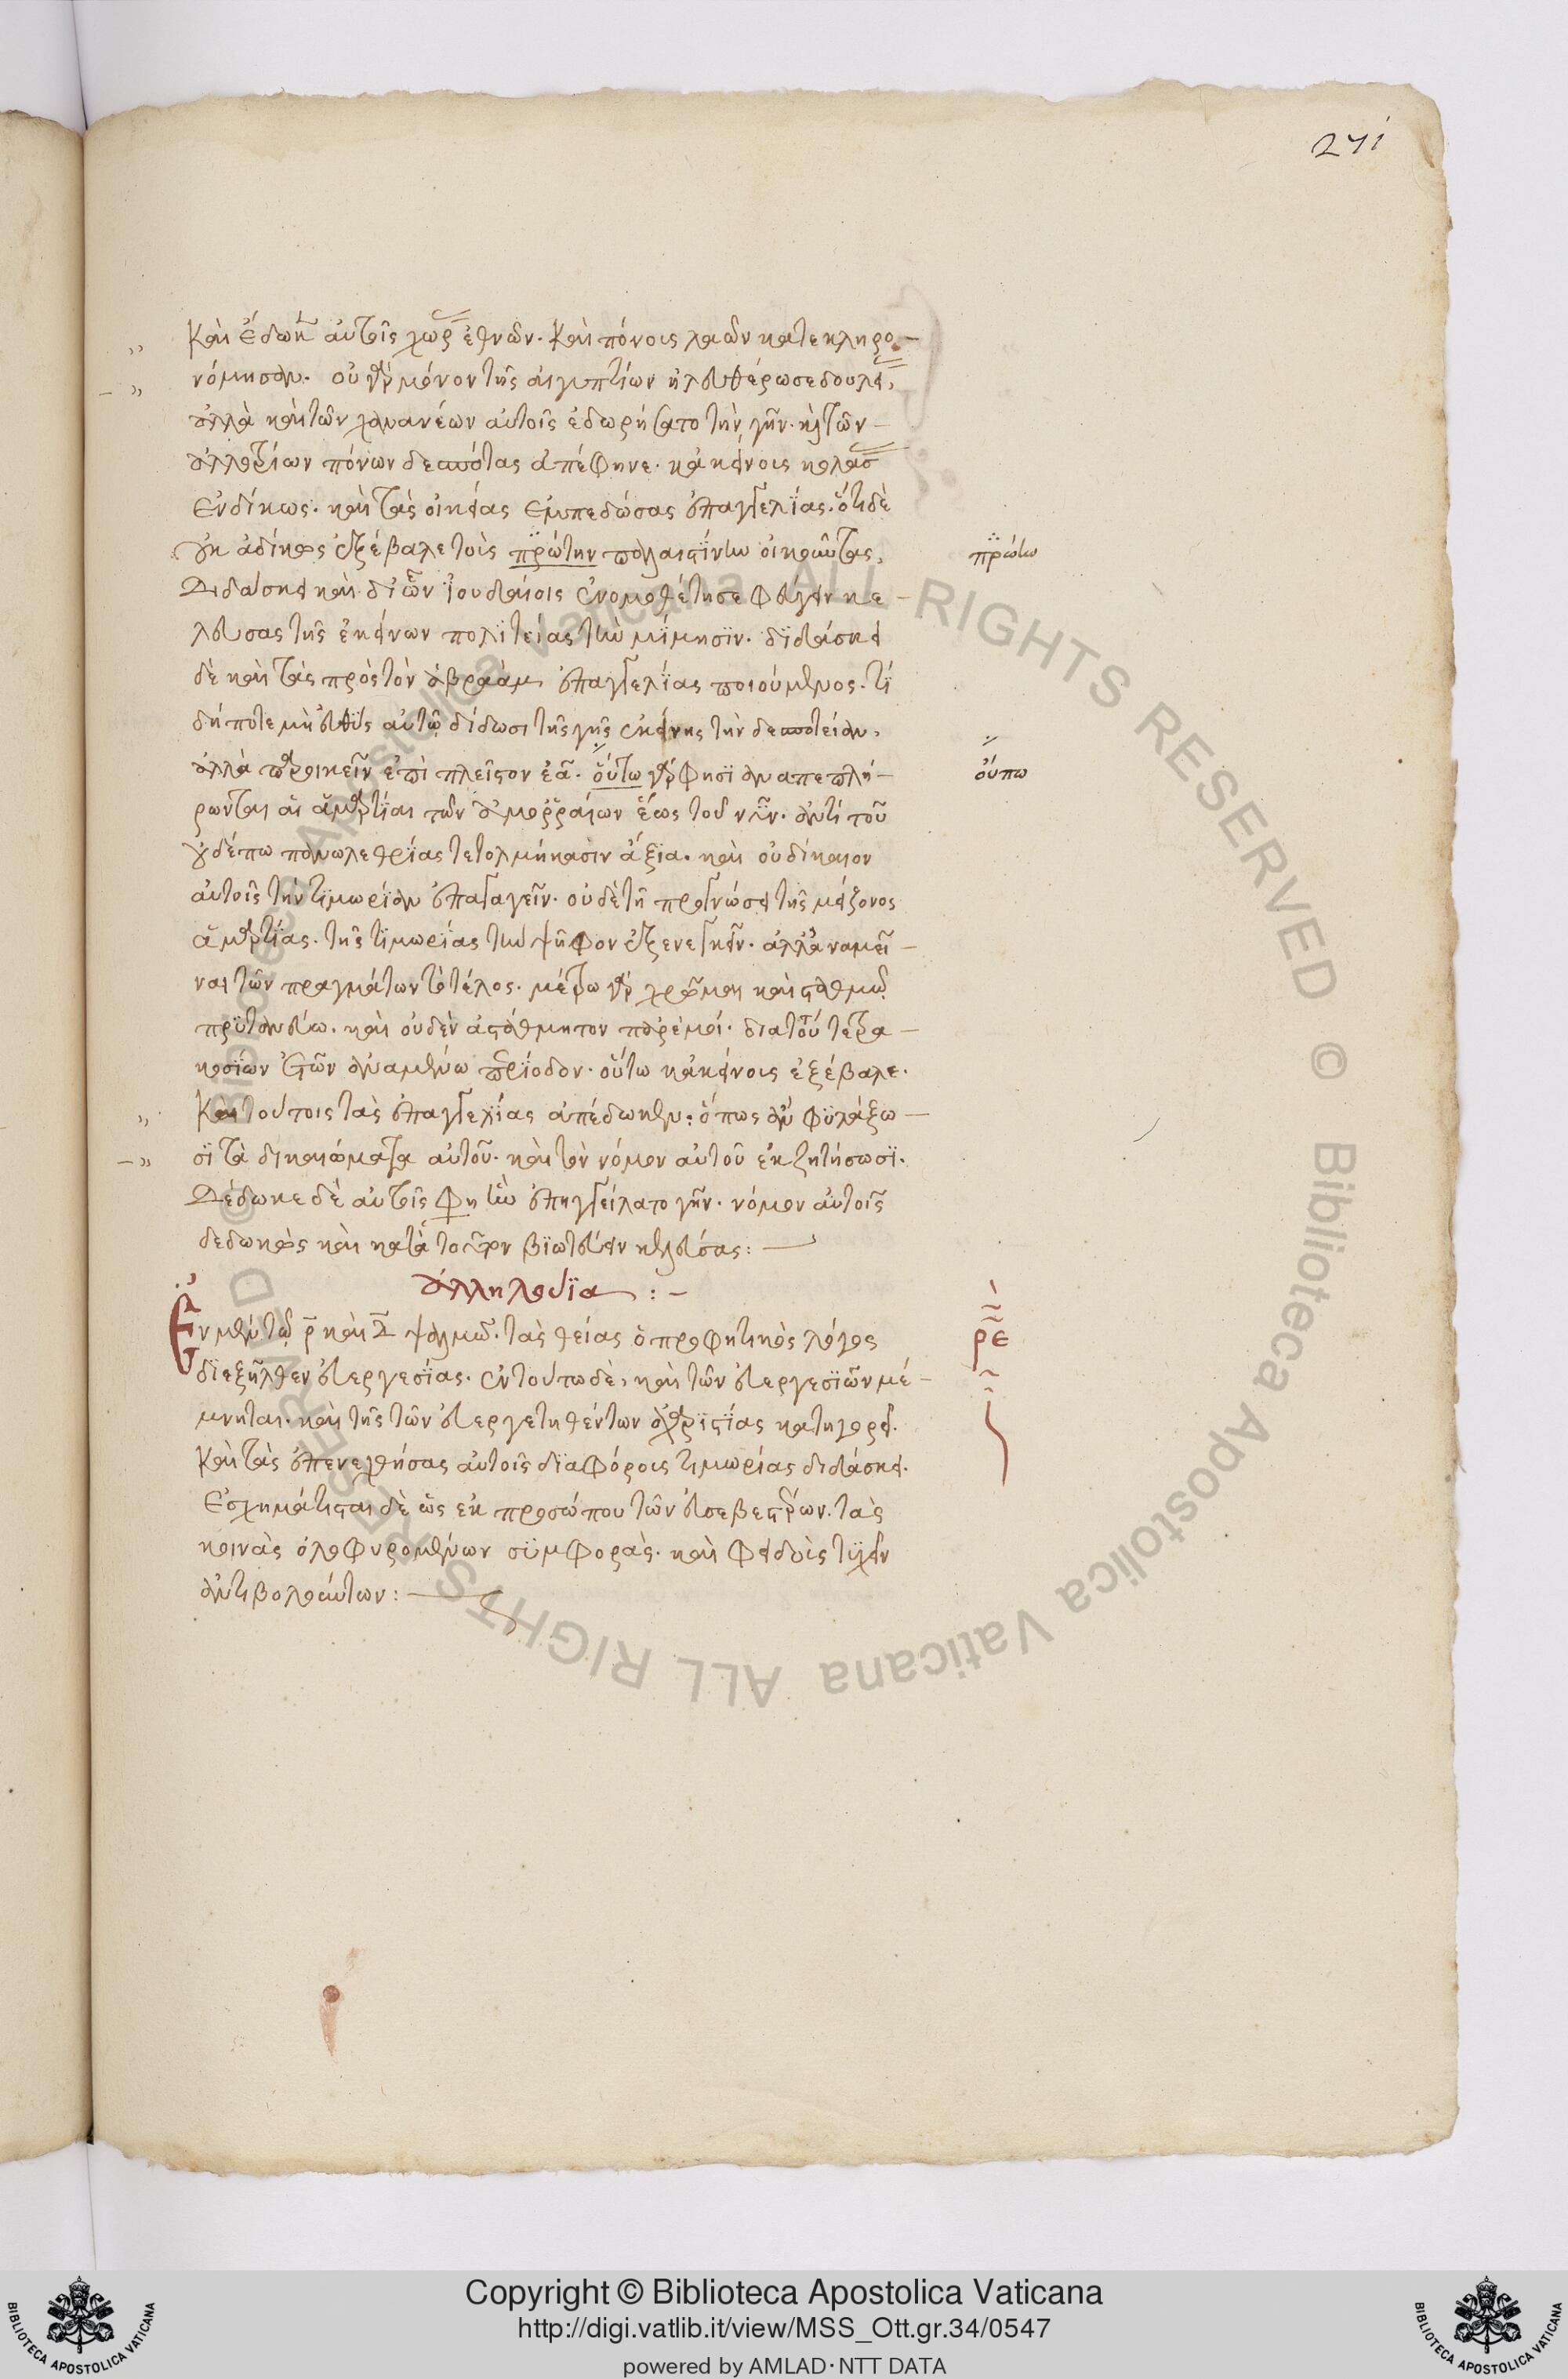 271
Καὶ ἔδωκεν αὐτοῖς χώρας ἐθνῶν. καὶ πόνοις λαῶν κατεκληρο-
νόμησαν. οὐ γὰρ μόνον τῆς αἰγυπτίων ἠλευθέρωσε δουλείας,
ἀλλὰ καὶ τῶν χαναναίων αὐτοῖς ἐδωρήσατο τὴν γῆν. καὶ τῶν
ἀλλοτρίων πόνων δεσπότας ἀπέφηνε. κἀκείνοις κολάσας
ἐνδίκως. καὶ τὰς οἰκείας ἐμπεδώσας ἐπαγγελίας. ὅτι δὲ
οὐκ ἀδίκως ἐξέβαλε τοὺς πρώτην παλαιστίνην οἰκοῦντας,
διδάσκει καὶ δι' ὧν ἰουδαίοις ἐνομοθέτησε φεύγειν κε-
λεύσας τῆς ἐκείνων πολιτείας τὴν μίμησιν. διδάσκει
δὲ καὶ τὰς πρὸς τὸν ἀβραὰμ ἐπαγγελίας ποιούμενος. τί
δήποτε μὴ εὐθὺς αὐτῷ δίδωσι τῆς γῆς ἐκείνης τὴν δεσποτείαν,
ἀλλὰ παροικεῖν ἐπὶ πλεῖστον ἐᾶ. οὕτω γὰρ φησὶ ἀναπεπλή-
ρωνται αἱ ἁμαρτίαι τῶν ἀμορραίων ἕως τοῦ νῦν. ἀντὶ τοῦ
οὐδέπω πανωλεθρίας τετολμήκασιν ἄξια. καὶ οὐ δίκαιον
αὐτοῖς τὴν τιμωρίαν ἐπαγαγεῖν. οὐδὲ τῇ προγνώσει τῆς μείζονος
ἁμαρτίας. τῆς τιμωρίας τὴν ψῆφον ἐξενεγκεῖν. ἀλλ' ἀναμεῖ-
ναι τῶν πραγμάτων τὸ τέλος. μέτρω γὰρ χρῶμαι καὶ σταθμῷ
πρυτανεύω. καὶ οὐδὲν ἀστάθμητον παρ' ἐμοί. διατοῦτο τετρα-
κοσίων ἐτῶν ἀναμένω περίοδον. οὕτω κἀκείνοις ἐξέβαλε.
Καὶ τούτοις τὰς ἐπαγγελίας ἀπέδωκεν: ὅπως ἂν φυλάξω-
σι τὰ δικαιώματα αὐτοῦ. καὶ τὸν νόμον αὐτοῦ ἐκζητήσωσι.
Δέδωκε δὲ αὐτοῖς φησὶν ἣν ἐπηγγείλατο γῆν. νόμον αὐτοῖς
δεδωκὼς καὶ κατὰ τοῦτον βιωτεύειν κελεύσας:
ἀλληλούϊα:-
Ἐν μὲν τῷ ρ καὶ δ ψαλμῷ. τὰς θείας ὁ προφητικὸς λόγος
διεξῆλθεν εὐεργεσίας. ἐν τούτω δὲ, καὶ τῶν εὐεργεσιῶν μέ-
μνηται. καὶ τῆς τῶν εὐεργετηθέντων ἀχαριστίας κατηγορεῖ.
Καὶ τὰς ἐπενεχθείσας αὐτοῖς διαφόροις τιμωρίας διδάσκει.
Ἐσχημάτισται δὲ ὡς ἐκ προσώπου τῶν εὐσεβεστέρων. τὰς
κοινὰς ὀλοφυρομένων συμφορὰς. καὶ φειδοῦς τυχεῖν
ἀντιβολούντων:
πρώην
οὔπω
ρε
Copyright © Biblioteca Apostolica Vaticana
http://digi.vatlib.it/view/MSS_Ott.gr.34/0547
powered by AMLAD·NTT DATA
BIBLIOTECA APOSTOLICA VATICANA
BIBLIOTECA APOSTOLICA VATICANA
© Biblioteca Apostolica Vaticana ALL RIGHTS RESERVED © Biblioteca Apostolica Vaticana ALL RIGHTS RESERVED